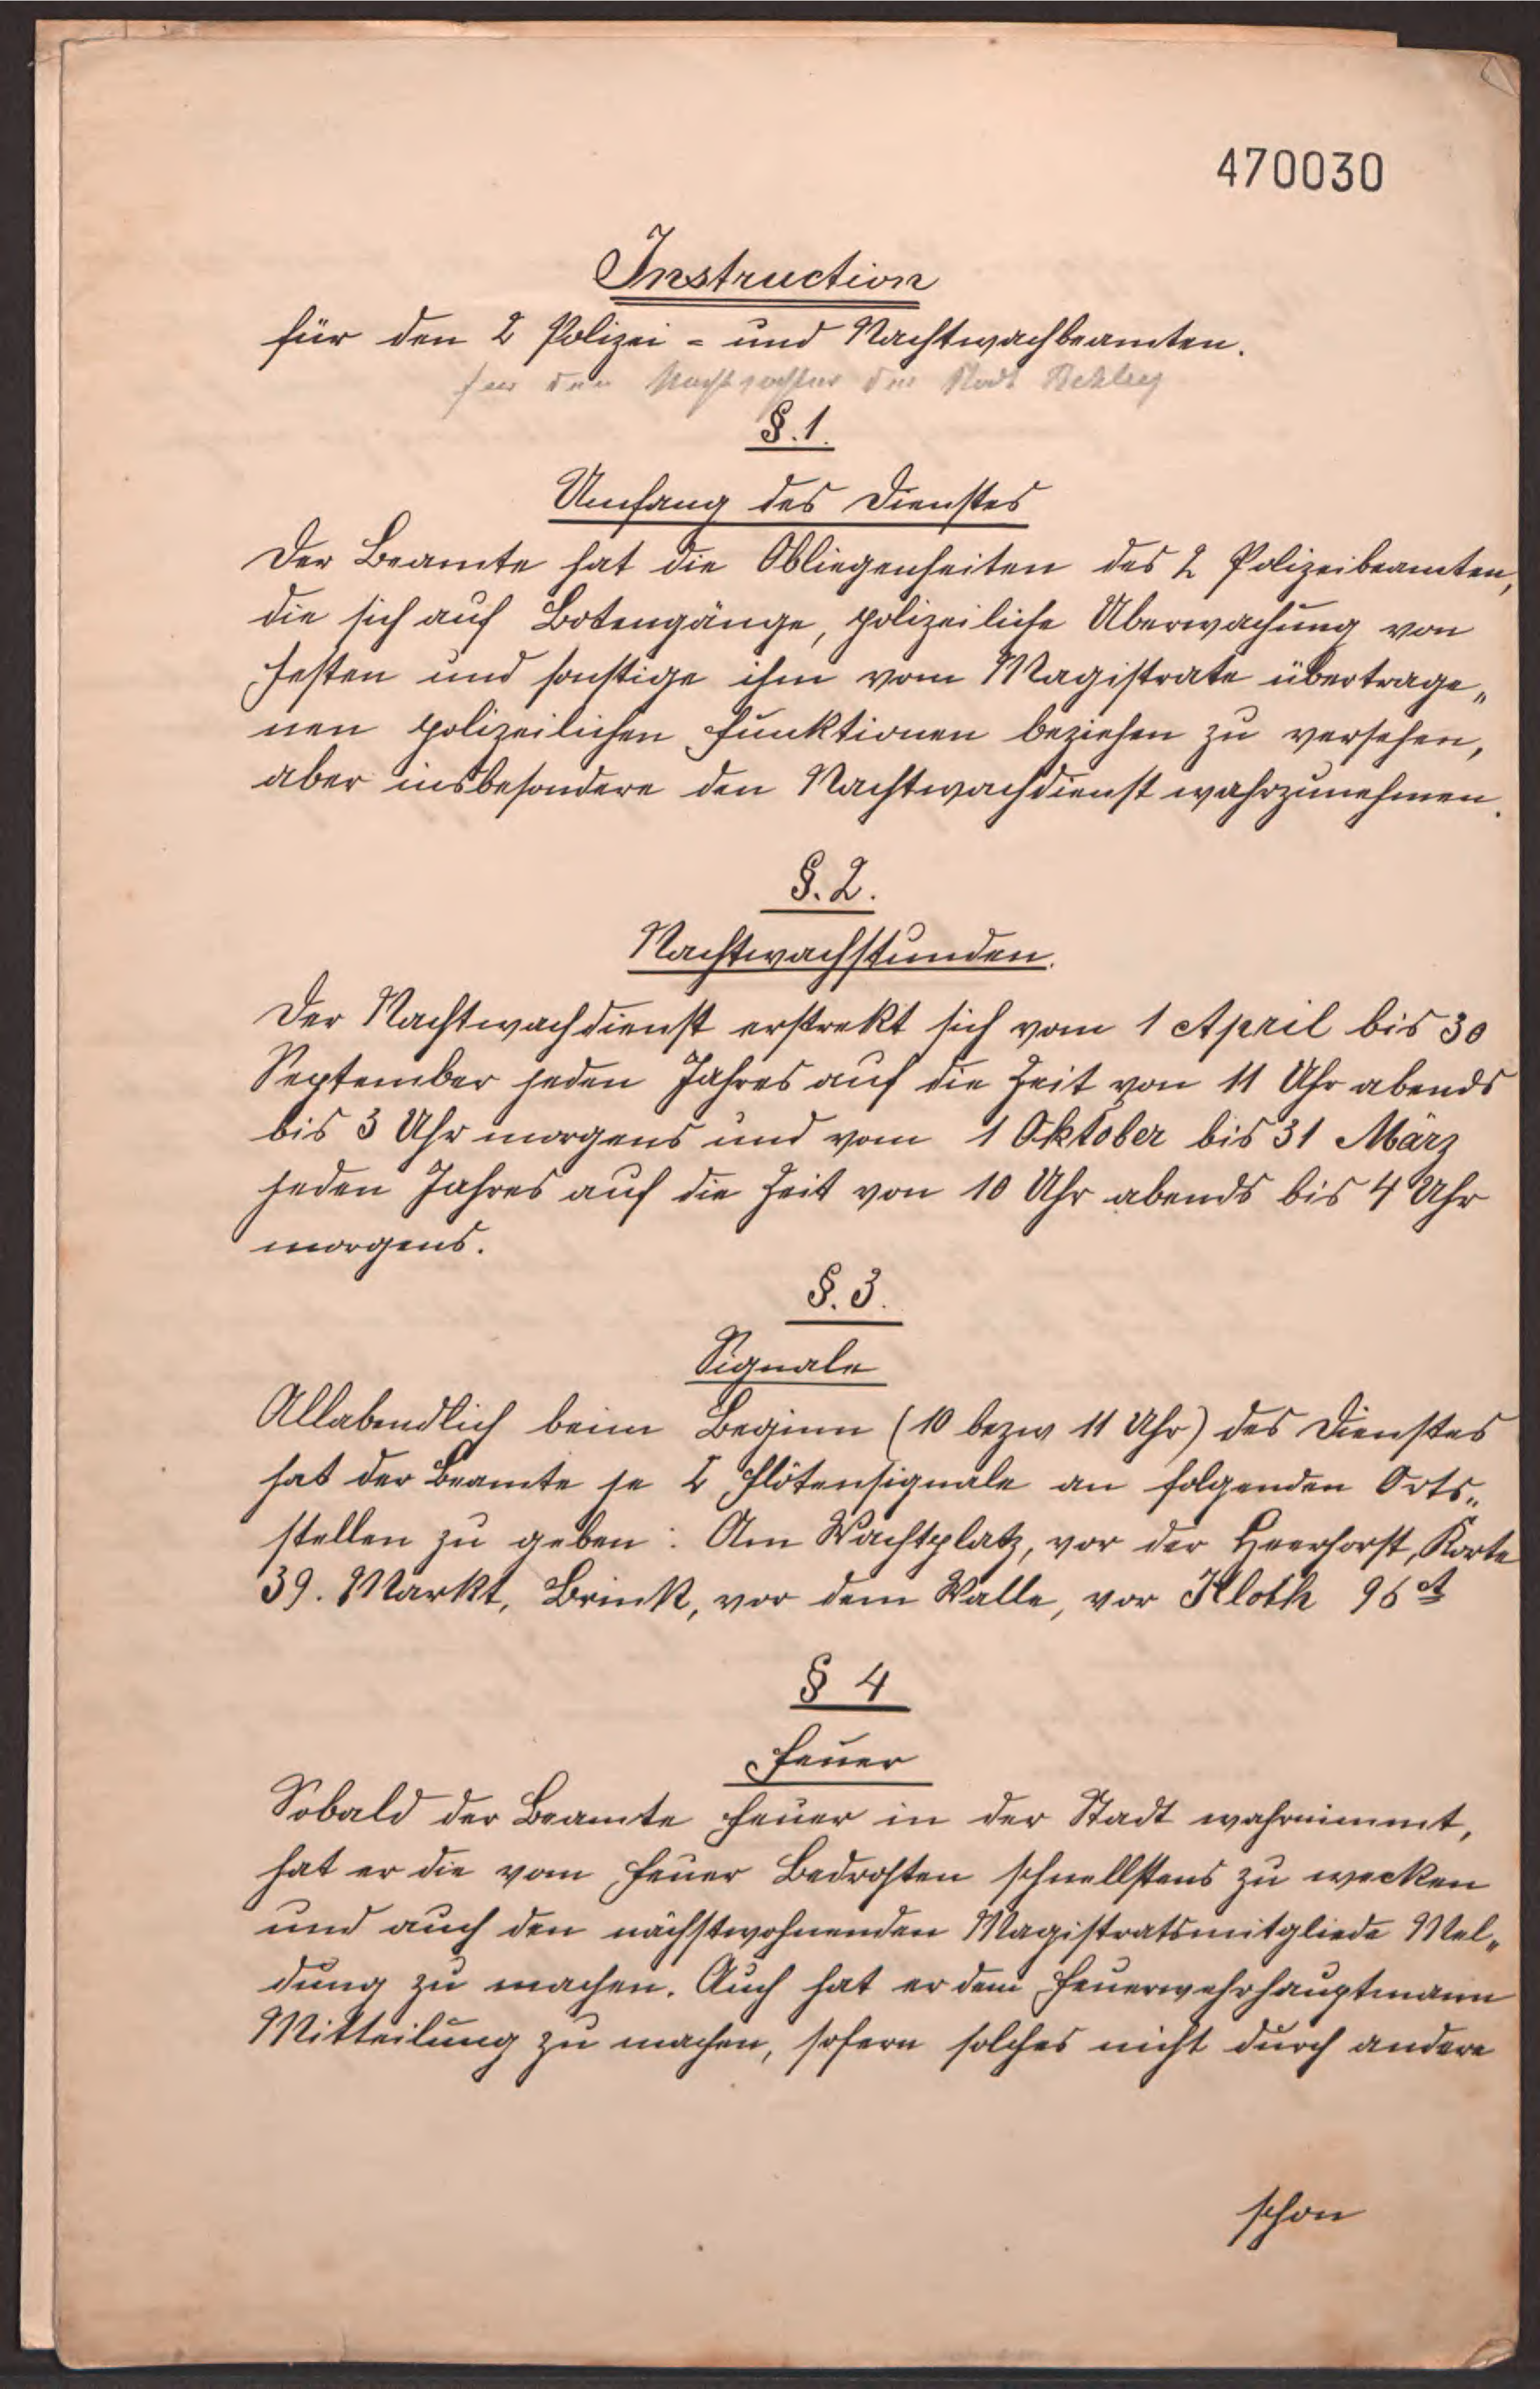 470030
Instruction
für den 2 Polizei- und Nachtwachbeamten.
für den Nachtwächter der Stadt
§. 1.
Umfang des Dienstes
Der Beamte hat die Obliegenheiten des 2 Polizeibeamten,
die sich auf Botengänge, polizeiliche Überwachung von
Festen und sonstige ihm vom Magistrate übertrage„
nen polizeilichen Funktionen beziehen zu versehen,
aber insbesondere den Nachtwachdienst wahrzunehmen.
§. 2.
Nachtwachstunden.
Der Nachtwachdienst erstrekt sich vom 1 April bis 30
September jeden Jahres auf die Zeit von 11 Uhr abends
bis 3 Uhr morgens und vom 1 Oktober bis 31 März
jeden Jahres auf die Zeit von 10 Uhr abends bis 4 Uhr
morgens.
§. 3.
Signale
Allabendlich beim Beginn (10 bezw 11 Uhr) des Dienstes
hat der Beamte je 2 Flötensignale an folgenden Orts„
stellen zu geben: Am Wachtplatz, vor der Heerhorst, Korte
39. Markt, Brink, vor dem Walle, vor Kloth 96
§ 4
Feuer
Sobald der Beamte Feuer in der Stadt wahrnimmt,
hat er die vom Feuer Bedrohten schnellstens zu wecken
und auch den nächstwohnenden Magistratsmitgliede Mel„
dung zu machen. Auch hat er dem Feuerwehrhauptmann
Mitteilung zu machen, sofern solches nicht durch andere
schon